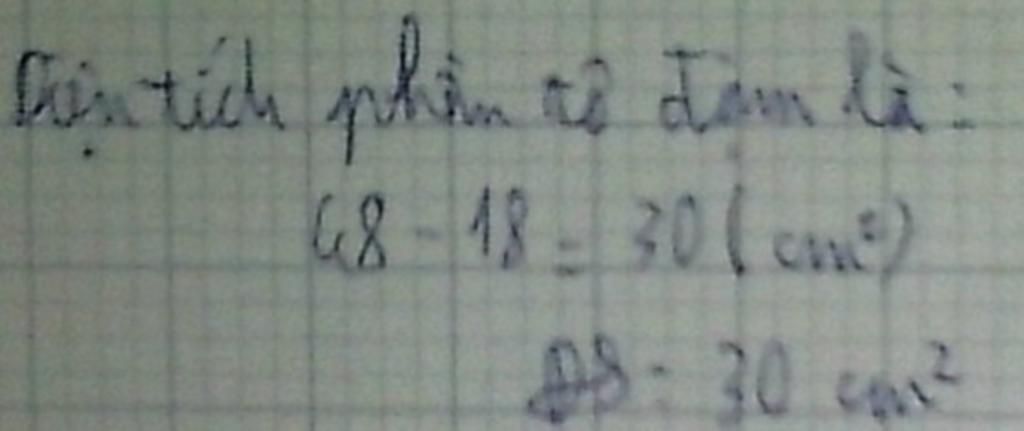 Diện tích phần tô đậm là:
48 - 18 = 30 (cm²)
ĐS: 30 cm²